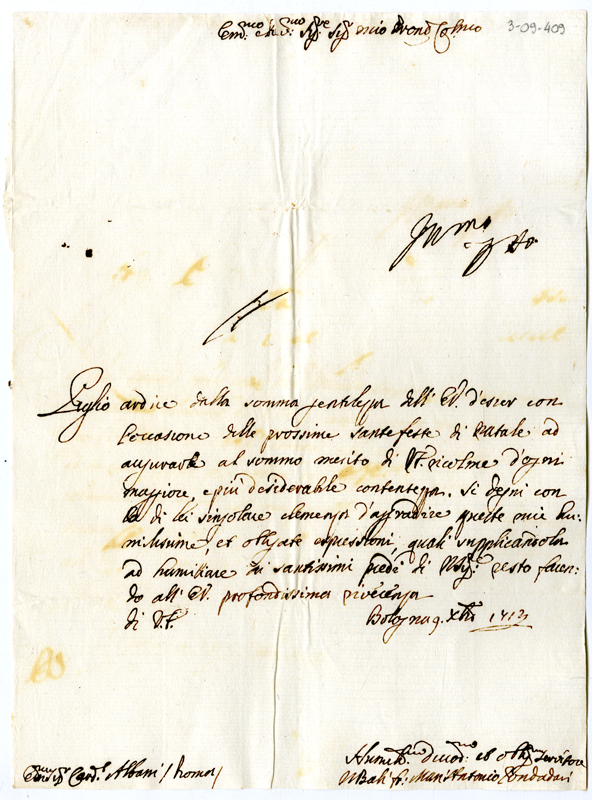 Em.mo e R.mo Sig.re Sig.r mio Pron Col.mo
3-09-409
Piglio ardire dalla somma gentilezza dell' E.V. d'esser con
l'occasione delle prossime sante feste di Natale ad
augurarle al sommo merito di V.E. ricolme d'ogni
maggiore, e più desiderabile contentezza. Si degni con
la di lei singolare clemenza d'aggradire queste mie hu-
milissime, et obligate espressioni, quali supplicandola
ad humiliare ai santissimi piedi di resto facen-
do all' E.V. profondissima riverenza
di V.E. Bologna 9. Xbre 1713
Humil.mo divot.mo et obl.mo servitore
Em.mo Sig.r Card.l Albani / Roma /
Il Balì fr. Marc'Antonio Zondadari